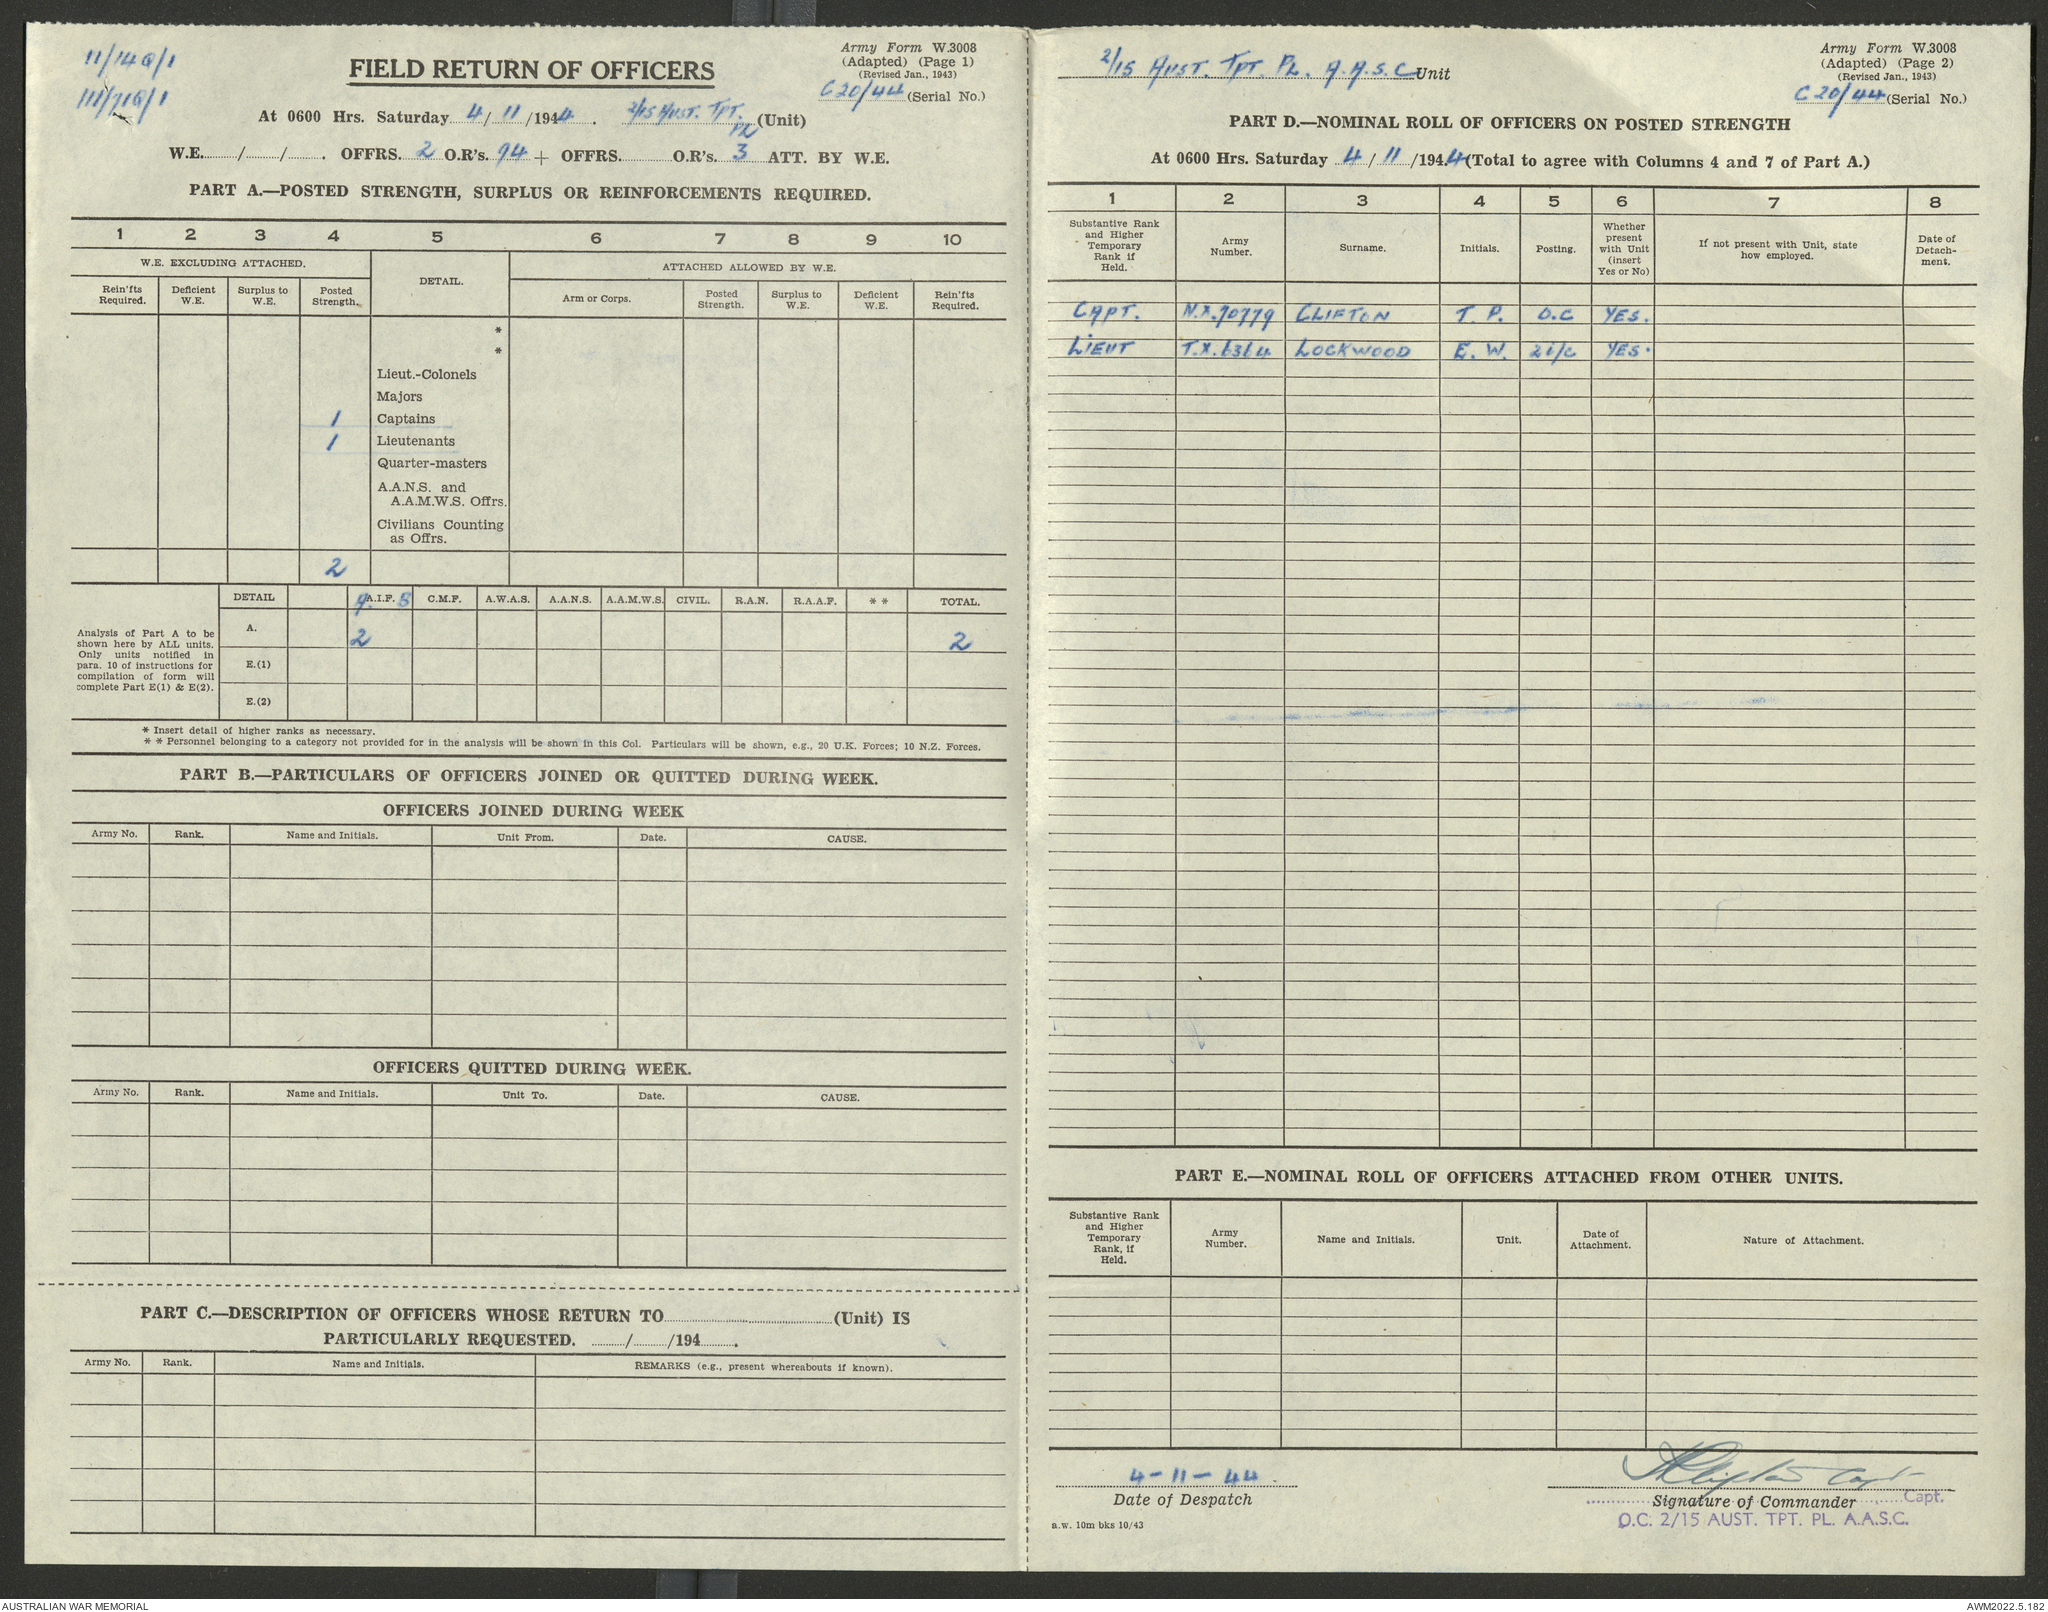 11/14Q/1
111/71Q/1
FIELD RETURN OF OFFICERS
Army Form W.3008
(Adapted) (Page 1)
(Revised Jan., 1943)
C20/44 (Serial No.)
At 0600 Hrs. Saturday 4/11/1944. 2/15 AUST. TPT. PL (Unit)
W.E. / / . OFFRS. 2 O.R's. 94 + OFFRS. O.R's. 3 ATT. BY W.E.
PART A.—POSTED STRENGTH, SURPLUS OR REINFORCEMENTS REQUIRED.
1 2 3 4 5 6 7 8 9 10
W.E. EXCLUDING ATTACHED. DETAIL. ATTACHED ALLOWED BY W.E.
Rein'fts Required. Deficient W.E. Surplus to W.E. Posted Strength. Arm or Corps. Posted Strength. Surplus to W.E. Deficient W.E. Rein'fts Required.
*
*
Lieut.-Colonels
Majors
1 Captains
1 Lieutenants
Quarter-masters
A.A.N.S. and
A.A.M.W.S. Offrs.
Civilians Counting
as Offrs.
2
DETAIL A.I.F. C.M.F. A.W.A.S. A.A.N.S. A.A.M.W.S. CIVIL. R.A.N. R.A.A.F. * * TOTAL.
Analysis of Part A to be
shown here by ALL units.
Only units notified in
para. 10 of instructions for
compilation of form will
complete Part E(1) & E(2).
A. 2 2
E.(1)
E.(2)
* Insert detail of higher ranks as necessary.
* * Personnel belonging to a category not provided for in the analysis will be shown in this Col. Particulars will be shown, e.g., 20 U.K. Forces; 10 N.Z. Forces.
PART B.—PARTICULARS OF OFFICERS JOINED OR QUITTED DURING WEEK.
OFFICERS JOINED DURING WEEK
Army No. Rank. Name and Initials. Unit From. Date. CAUSE.
OFFICERS QUITTED DURING WEEK.
Army No. Rank. Name and Initials. Unit To. Date. CAUSE.
PART C.—DESCRIPTION OF OFFICERS WHOSE RETURN TO (Unit) IS
PARTICULARLY REQUESTED. / /194 .
Army No. Rank. Name and Initials. REMARKS (e.g., present whereabouts if known).
2/15 AUST. TPT. PL. A.A.S.C Unit
Army Form W.3008
(Adapted) (Page 2)
(Revised Jan., 1943)
C20/44 (Serial No.)
PART D.—NOMINAL ROLL OF OFFICERS ON POSTED STRENGTH
At 0600 Hrs. Saturday 4/11/1944 (Total to agree with Columns 4 and 7 of Part A.)
1 2 3 4 5 6 7 8
Substantive Rank and Higher Temporary Rank if Held. Army Number. Surname. Initials. Posting. Whether present with Unit (insert Yes or No) If not present with Unit, state how employed. Date of Detach-ment.
CAPT. N.X.70779 CLIFTON T. P. O.C YES.
LIEUT T.X.6364 LOCKWOOD E. W. 2i/c YES.
PART E.—NOMINAL ROLL OF OFFICERS ATTACHED FROM OTHER UNITS.
Substantive Rank and Higher Temporary Rank, if Held. Army Number. Name and Initials. Unit. Date of Attachment. Nature of Attachment.
4-11-44
Date of Despatch
Clifton Capt
Signature of Commander Capt.
O.C. 2/15 AUST. TPT. PL. A.A.S.C.
a.w. 10m bks 10/43
AUSTRALIAN WAR MEMORIAL
AWM2022.5.182